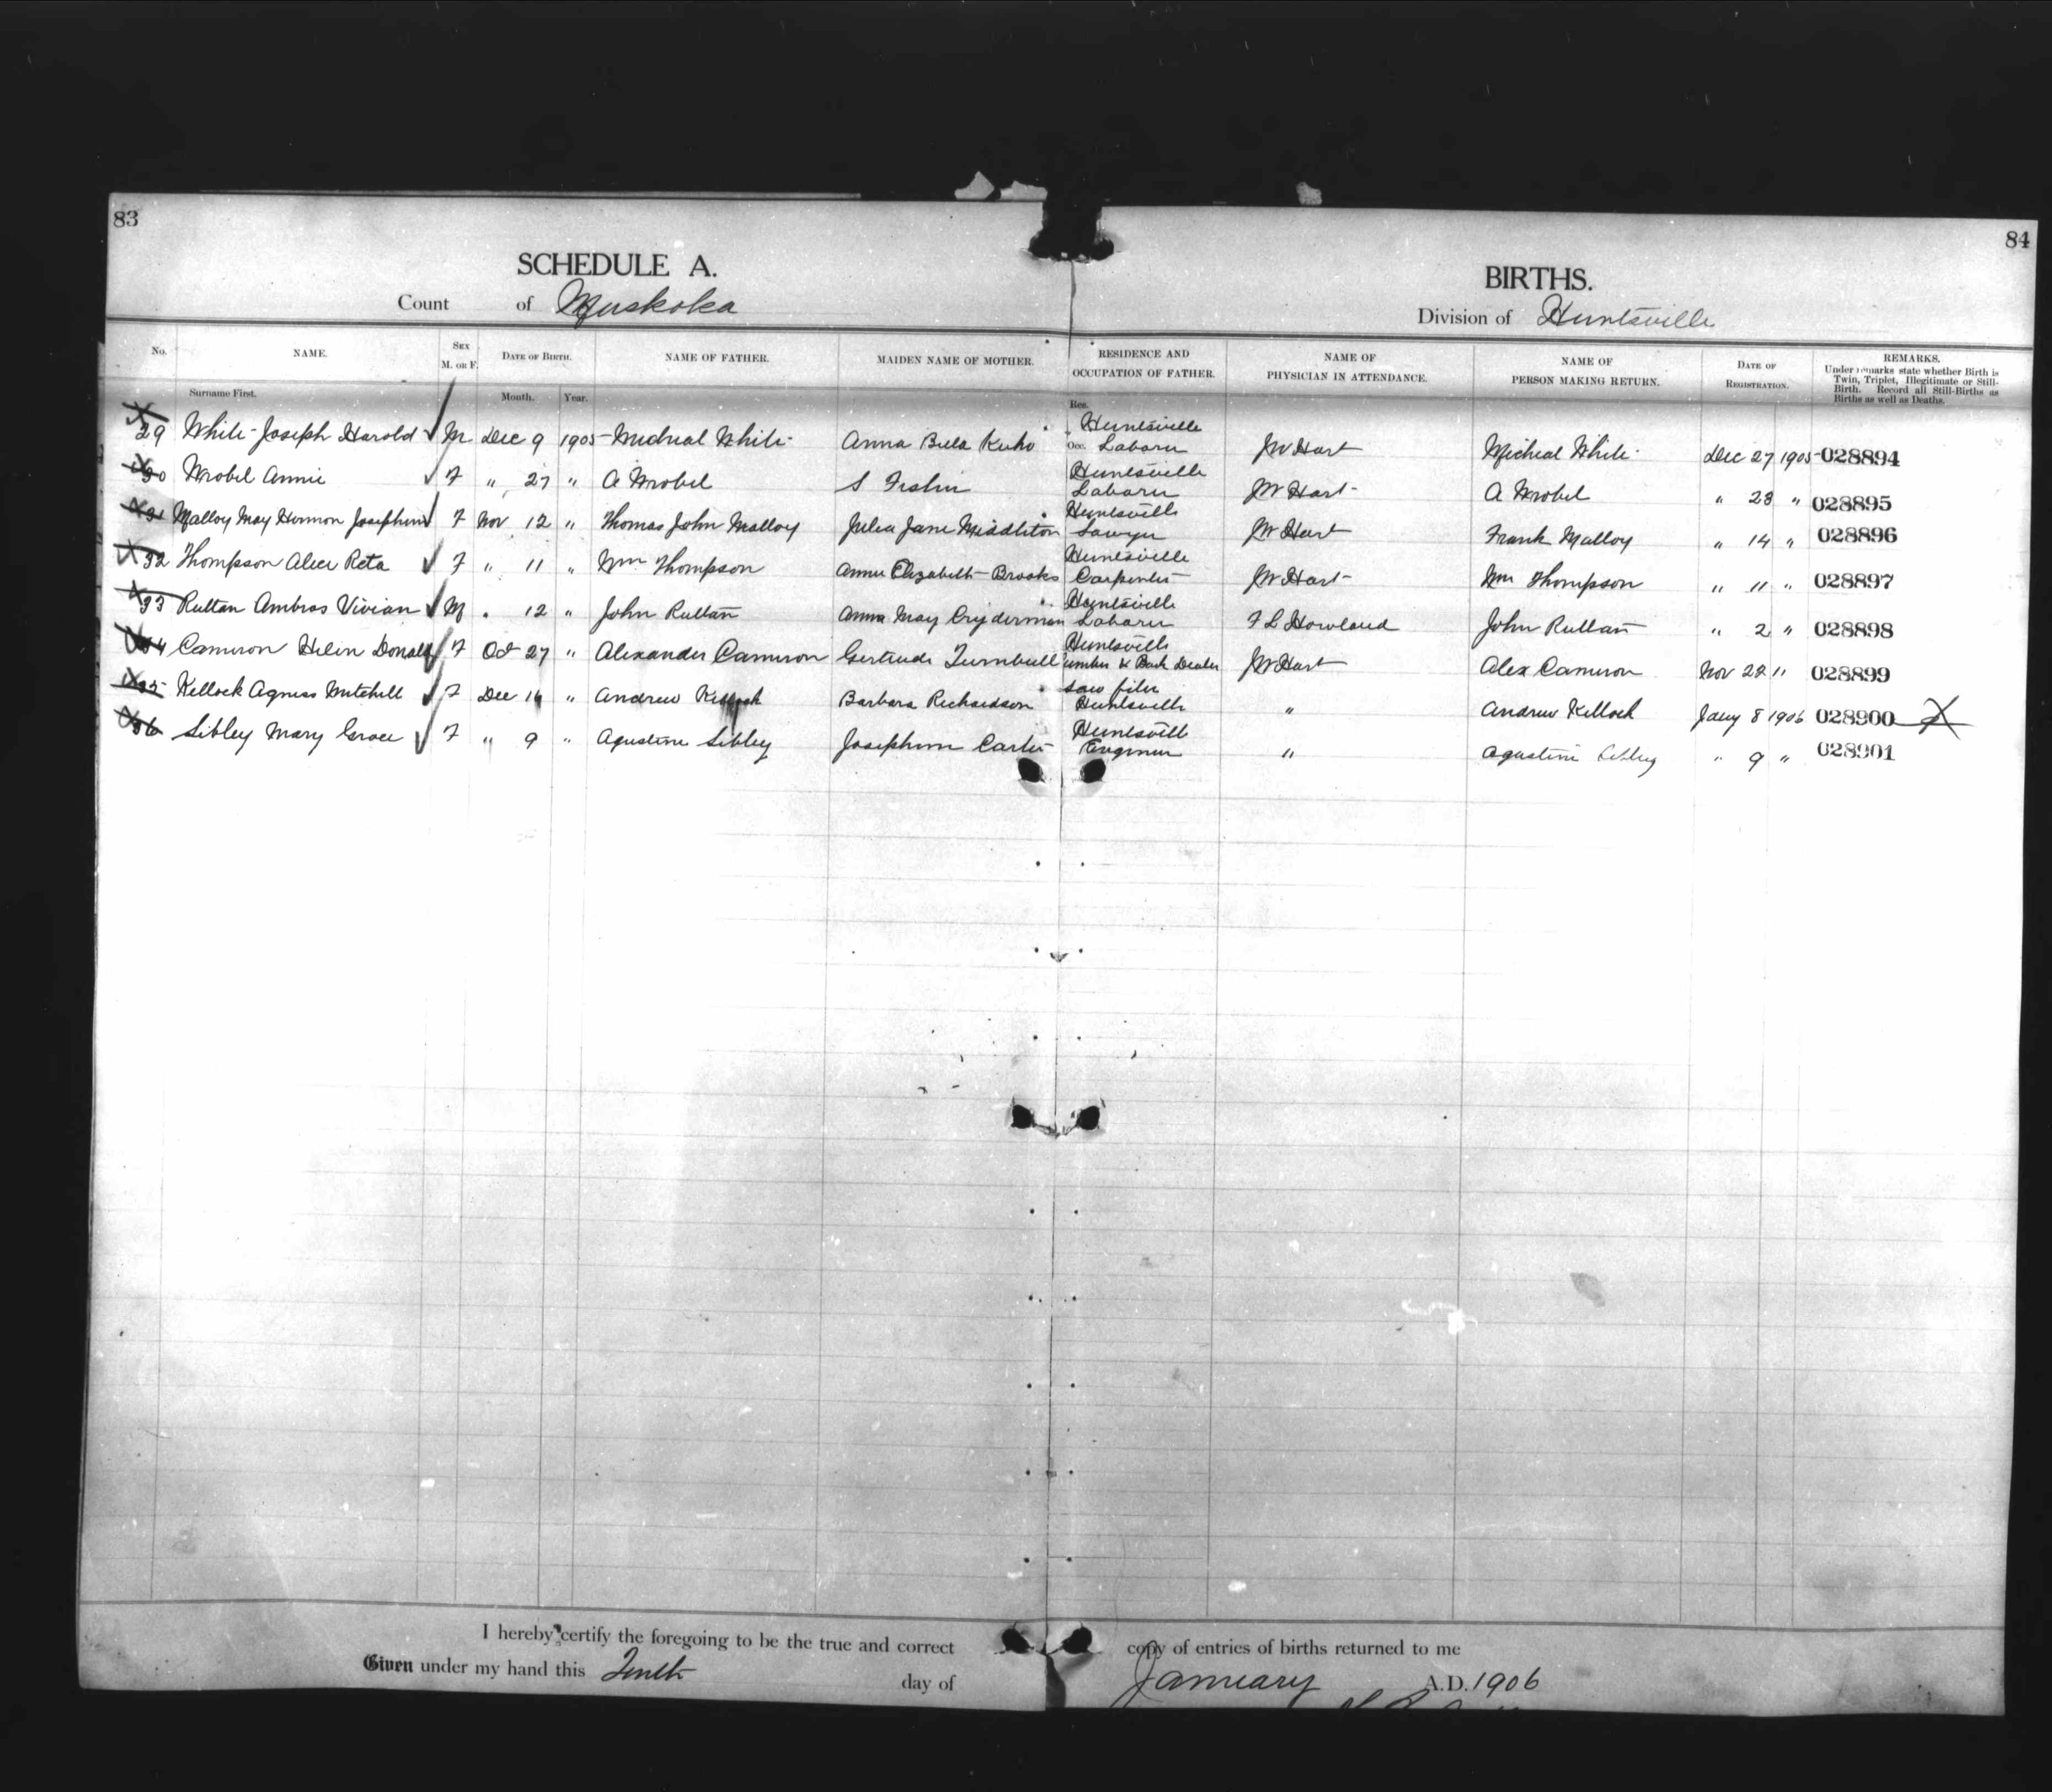 83
84
SCHEDULE A.
BIRTHS.
Count of Muskoka
Division of Huntsville
No. NAME. SEX M. OR F. DATE OF BIRTH. NAME OF FATHER. MAIDEN NAME OF MOTHER. RESIDENCE AND OCCUPATION OF FATHER. NAME OF PHYSICIAN IN ATTENDANCE. NAME OF PERSON MAKING RETURN. DATE OF REGISTRATION. REMARKS.
Under remarks state whether Birth is Twin, Triplet, Illegitimate or Still-Birth. Record all Still-Births as Births as well as Deaths.
Surname First. Month. Year.
29 White Joseph Harold M Dec 9 1905 White Anna Bela Res. Huntsville Occ. Laborer JW Hart Micheal White Dec 27 1905 028894
30 Wrobel Annie F " 27 " A Wrobel S Huntsville Laborer JW Hart A Wrobel " 28 " 028895
31 Malloy May Josephine F Nov 12 " Thomas John Malloy Julia Jane Middleton Huntsville Sawyer JW Hart Frank Malloy " 14 " 028896
32 Thompson Alice Reta F " 11 " Wm Thompson Annie Elizabeth Brooks Huntsville Carpenter JW Hart Wm Thompson " 11 " 028897
33 Ruttan Ambros Vivian M " 12 " John Ruttan Anna May Cryderman Huntsville Laborer F L Howland John Ruttan " 2 " 028898
34 Cameron Helen Donald F Oct 27 " Alexander Cameron Gertrude Turnbull Huntsville & Bark Dealer JW Hart Alex Cameron Nov 22 " 028899
35 Kellock Agness Mitchell F Dec Andrew Kellock Barbara Richardson Saw filer Huntsville " Andrew Kellock Jany 8 1906 028900
36 Sibley Mary Grace F " 9 " Agustine Sibley Josephine Carter Huntsville Engineer " Agustine Sibley " 9 " 028901
I hereby certify the foregoing to be the true and correct copy of entries of births returned to me
Given under my hand this Tenth day of January A.D. 1906